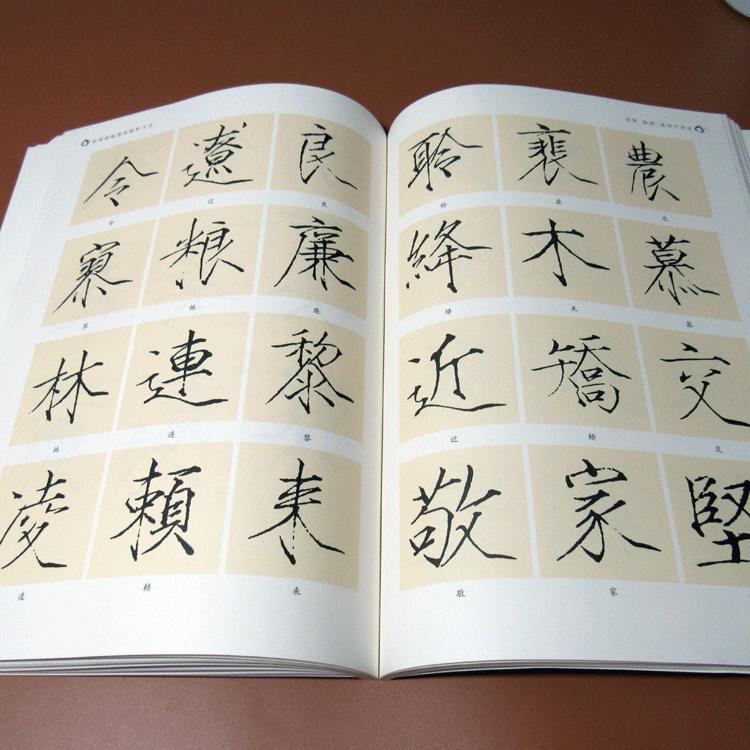 令 遼 良
令 辽 良
寮 粮 廉
粮 廉
林 連 黎
林 连 黎
凌 賴 来
凌 赖 来
聆 裴 農
农
絳 木 慕
绛 木 慕
近 矯 交
近 矫 交
敬 家 堅
敬 家